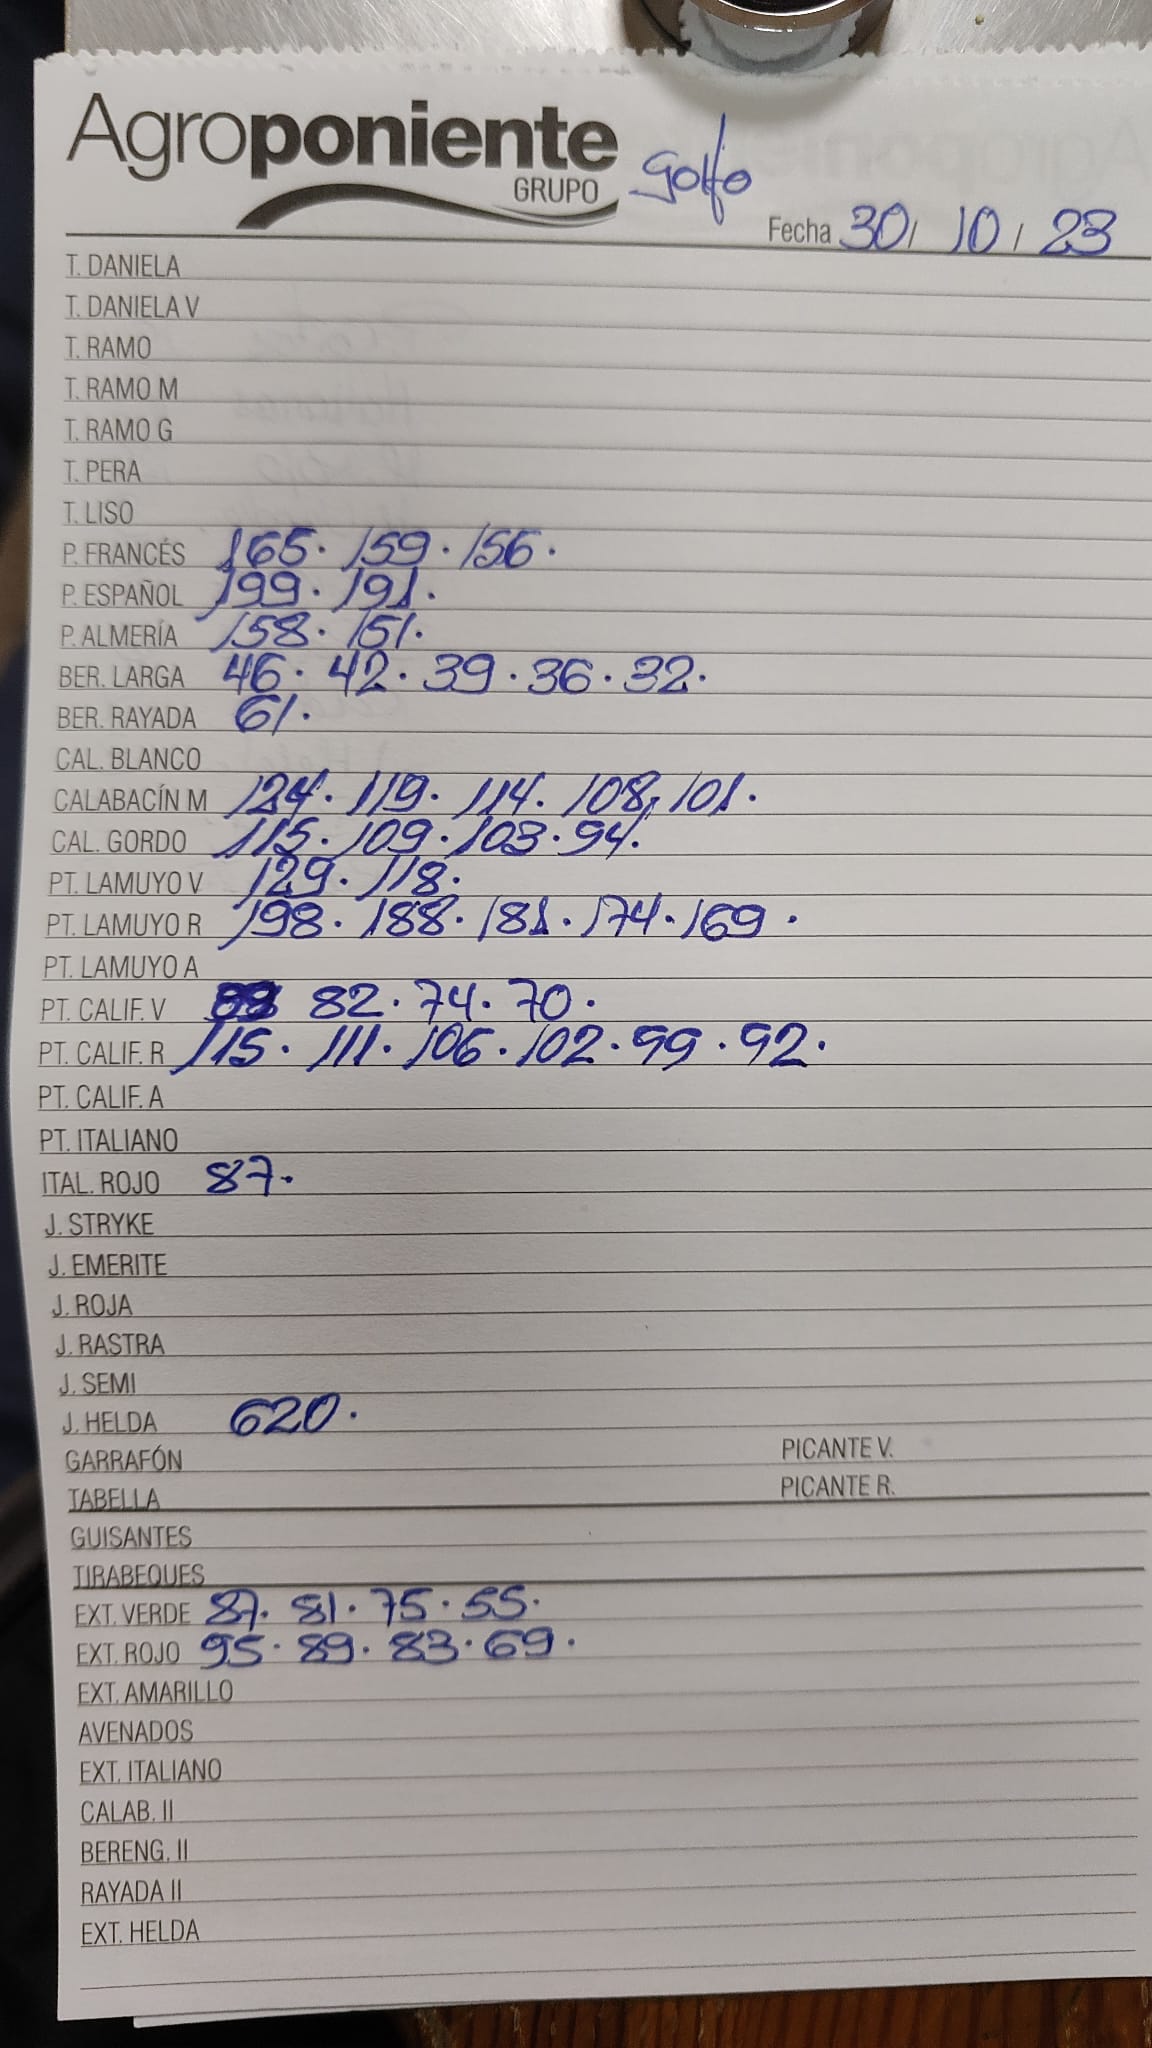 Agroponiente
GRUPO
Golfo
Fecha 30/ 10 / 23
T. DANIELA
T. DANIELA V
T. RAMO
T. RAMO M
T. RAMO G
T. PERA
T. LISO
P. FRANCÉS 165. 159. 156.
P. ESPAÑOL 199. 191.
P. ALMERÍA 158. 151.
BER. LARGA 46. 42. 39. 36. 32.
BER. RAYADA 61.
CAL. BLANCO
CALABACÍN M 124. 119. 114. 108, 101.
CAL. GORDO 115. 109. 103. 94.
PT. LAMUYO V 129. 118.
PT. LAMUYO R 198. 188. 181. 174. 169.
PT. LAMUYO A
PT. CALIF. V 82. 74. 70.
PT. CALIF. R 115. 111. 106. 102. 99. 92.
PT. CALIF. A
PT. ITALIANO
ITAL. ROJO 87.
J. STRYKE
J. EMERITE
J. ROJA
J. RASTRA
J. SEMI
J. HELDA 620.
GARRAFÓN PICANTE V.
TABELLA PICANTE R.
GUISANTES
TIRABEQUES
EXT. VERDE 87. 81. 75. 55.
EXT. ROJO 95. 89. 83. 69.
EXT. AMARILLO
AVENADOS
EXT. ITALIANO
CALAB. II
BERENG. II
RAYADA II
EXT. HELDA